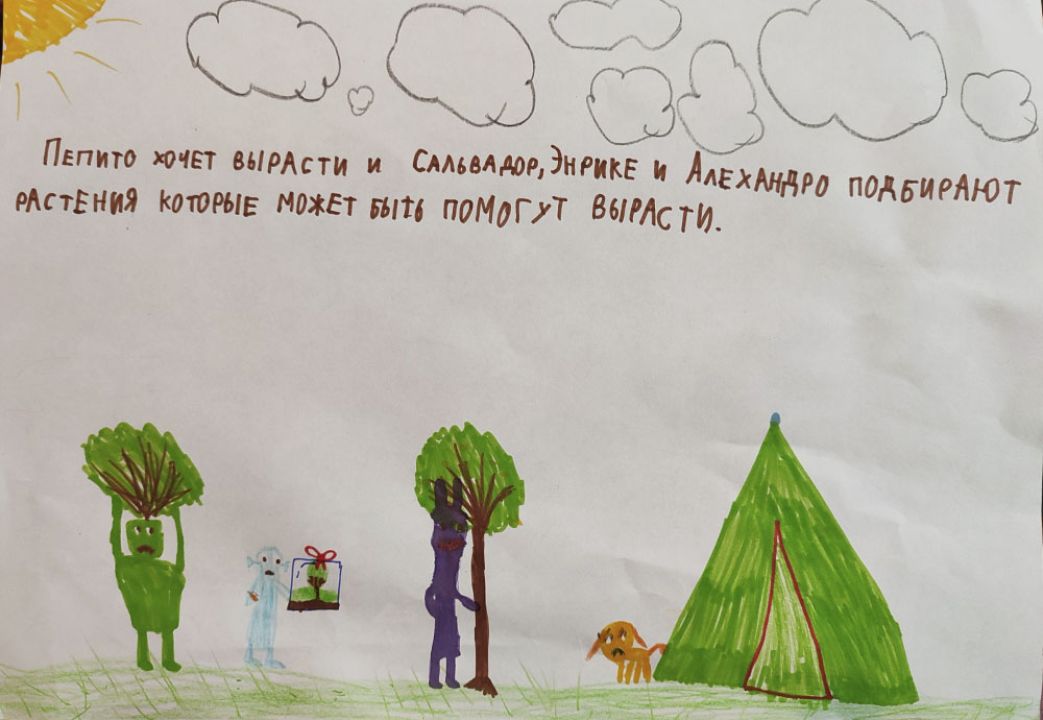 Пепито хочет вырасти и Сальвадор, Энрике и Алехандро подбирают
растения которые может быть помогут вырасти.